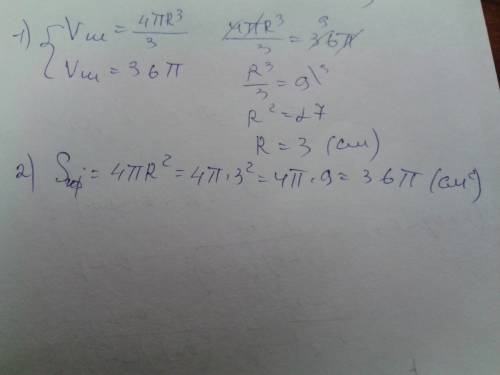 1) { Vш = 4πR³/3   4πR³/3 = 36π 9
Vш = 36π   R³/3 = 9 \³
R² = 27
R = 3 (см)
2) Sсф = 4πR² = 4π·3² = 4π·9 = 36π (см²)